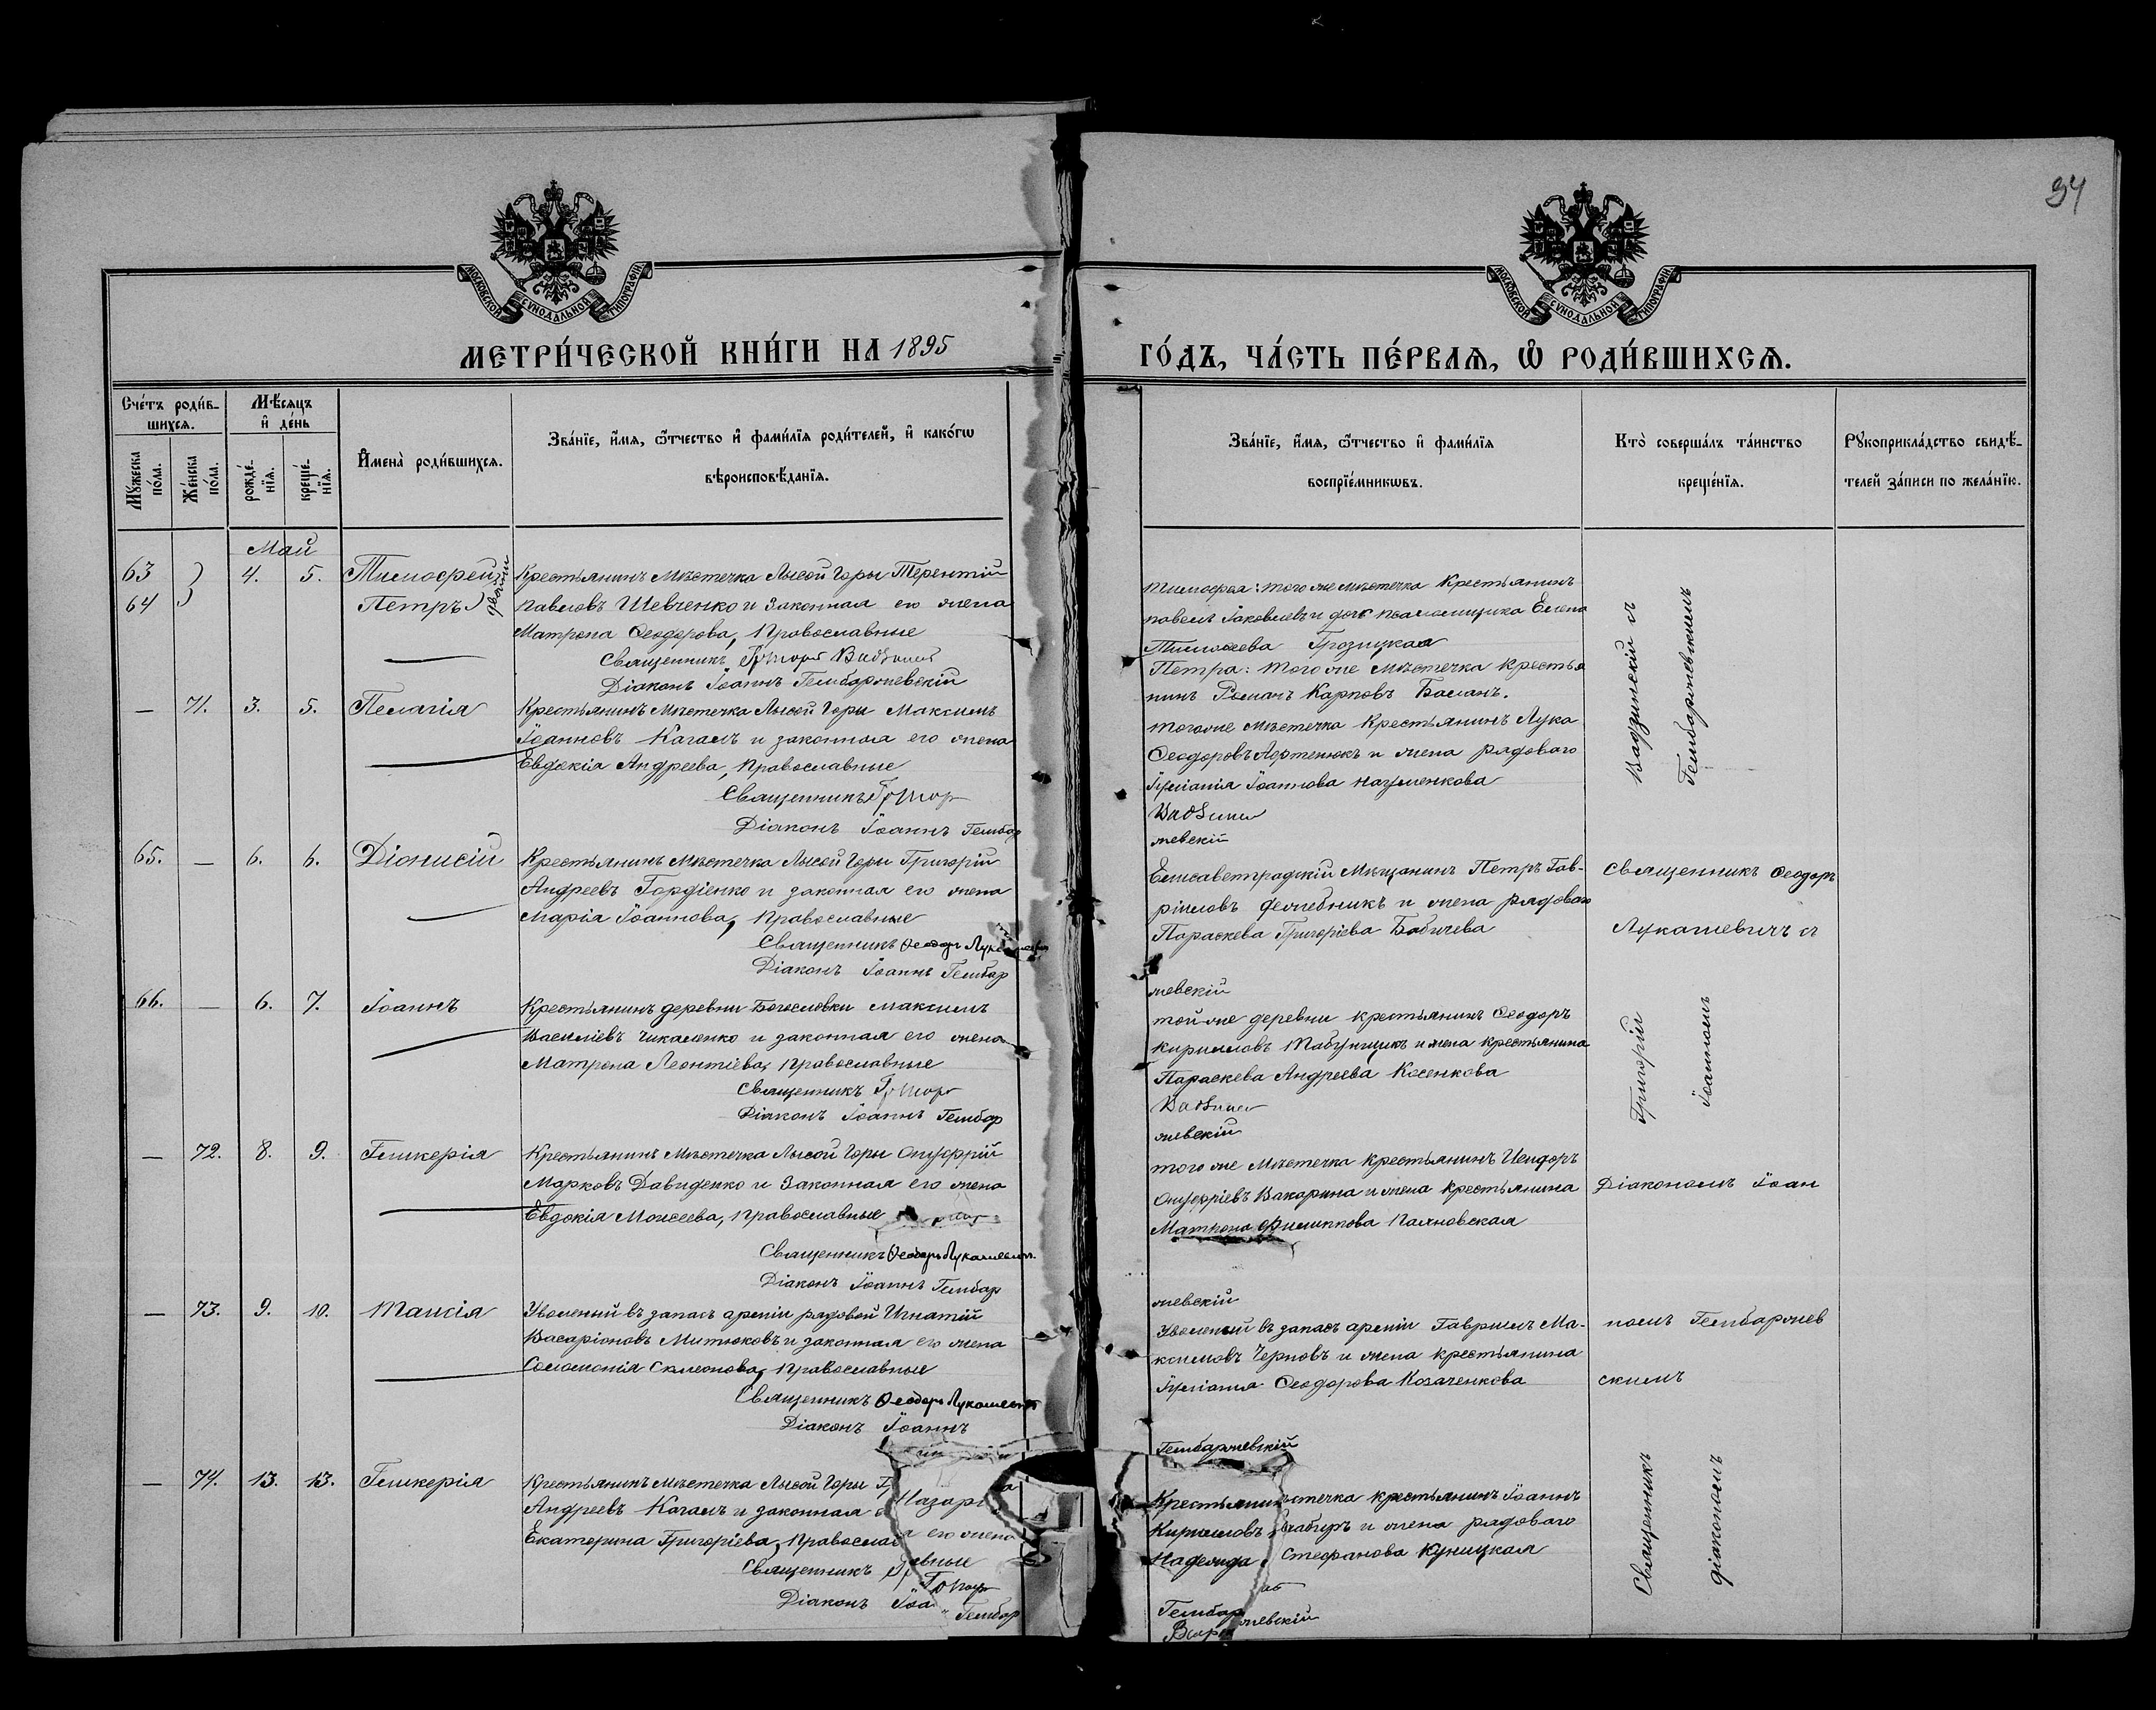 94
МОСКОВСКОЙ СѴНОДАЛЬНОЙ ТИПОГРАФІИ
МОСКОВСКОЙ СѴНОДАЛЬНОЙ ТИПОГРАФІИ
МЕТРИ́ЧЕСКОЙ КНИ́ГИ НА 1895
ГО́ДЪ, ЧА́СТЬ ПЕ́РВАЯ, Ѽ РОДИ́ВШИХСЯ.
Сче́тъ роди́в-
шихся.
Му́жеска по́ла.
Же́нска по́ла.
Мѣ́сяцъ
и҆ де́нь
рожде́-нїя.
креще́-нїя.
И҆мена̀ роди́вшихся.
Зва́нїе, и҆́мя, ѻ҆́тчество и҆ фами́лїя роди́телей, и҆ како́гѡ
вѣроисповѣ́данїя.
Зва́нїе, и҆́мя, ѻ҆́тчество и҆ фами́лїя
воспрїе́мникѡвъ.
Кто̀ соверша́лъ та́инство
креще́нїя.
Рꙋкоприкла́дство свидѣ́-
телей за́писи по жела́нїю.
Май
63
64
4. 5. Тимоѳей
Петръ
двойни
Крестьянинъ Мѣстечка Лысой Горы Терентій
Павловъ Шевченко и Законная его жена
Матрона Ѳеодорова, Православные
Священникъ Григорій
Діаконъ Іоаннъ Гембаржевскій
Тимоѳея: того же мѣстечка Крестьянинъ
Павелъ Іаковлевъ и дочь псаломщика Елена
Тимоѳеева Грозицкая
Петра: того же Мѣстечка крестья
нинъ Романъ Карповъ Баланъ.
Вадзинскій съ
Гембаржевскимъ
— 71. 3. 5. Пелагія
Крестьянинъ Мѣстечка Лысой Горы Максимъ
Іоанновъ Кагалъ и законная его жена
Евдокія Андреева, Православные
Священникъ Григор
Діаконъ Іоаннъ Гембар
тогоже мѣстечка Крестьянинъ Лука
Ѳеодоровъ и жена рядоваго
Іуліанія Іоаннова Науменкова
жевскій
65. — 6. 6. Діонисій
Крестьянинъ Мѣстечка Лысой Горы Григорій
Андреевъ Гордіенко и законная его жена
Марія Іоаннова, Православные
Священникъ Ѳеодоръ Лукашевичъ
Діаконъ Іоаннъ Гембар
Елисаветградскій Мѣщанинъ Петръ Гав-
ріиловъ и жена рядоваго
Параскева Григоріева Бабичева
жевскій
Священникъ Ѳеодоръ
Лукашевичъ съ
66. — 6. 7. Іоаннъ
Крестьянинъ деревни Богословки Максимъ
Василіевъ Чикаленко и законная его жена
Матрона Леонтіева, Православные
Священникъ Григор
Діаконъ Іоаннъ Гембар
той же деревни крестьянинъ Ѳеодоръ
Кирилловъ Табунщикъ и жена крестьянина
Параскева Андреева Косенкова
жевскій
Григорій
Іоанномъ
— 72. 8. 9. Гликерія
Крестьянинъ Мѣстечка Лысой Горы Онуфрій
Марковъ Давиденко и Законная его жена
Евдокія Моисеева, Православные
Священникъ Ѳеодоръ Лукашевичъ
Діаконъ Іоаннъ Гембар
того же Мѣстечка крестьянинъ Исидоръ
Онуфріевъ Вакарина и жена крестьянина
Матрона Филиппова
жевскій
Діакономъ Іоан
— 73. 9. 10. Таисія
Уволеный въ запасъ арміи рядовой Игнатій
Васаріоновъ Митюковъ и законная его жена
Соломонія Симеонова, Православные
Священникъ Ѳеодоръ Лукашевичъ
Діаконъ Іоаннъ
Уволеный въ запасъ арміи Гавриилъ Ма-
ксимовъ Черновъ и жена крестьянина
Іуліанія Ѳеодорова Козаченкова
Гембаржевскій
номъ Гембаржев
скимъ
— 74. 13. 13. Гликерія
Крестьянинъ Мѣстечка Лысой Горы
Андреевъ Кагалъ и законная его жена
Екатерина Григоріева, Православные
Священникъ Григор
Діаконъ Гембар
крестьянинъ Іоаннъ
Кирилловъ и жена рядоваго
Надежда Стефанова Куницкая
жевскій
Священникъ
діакономъ